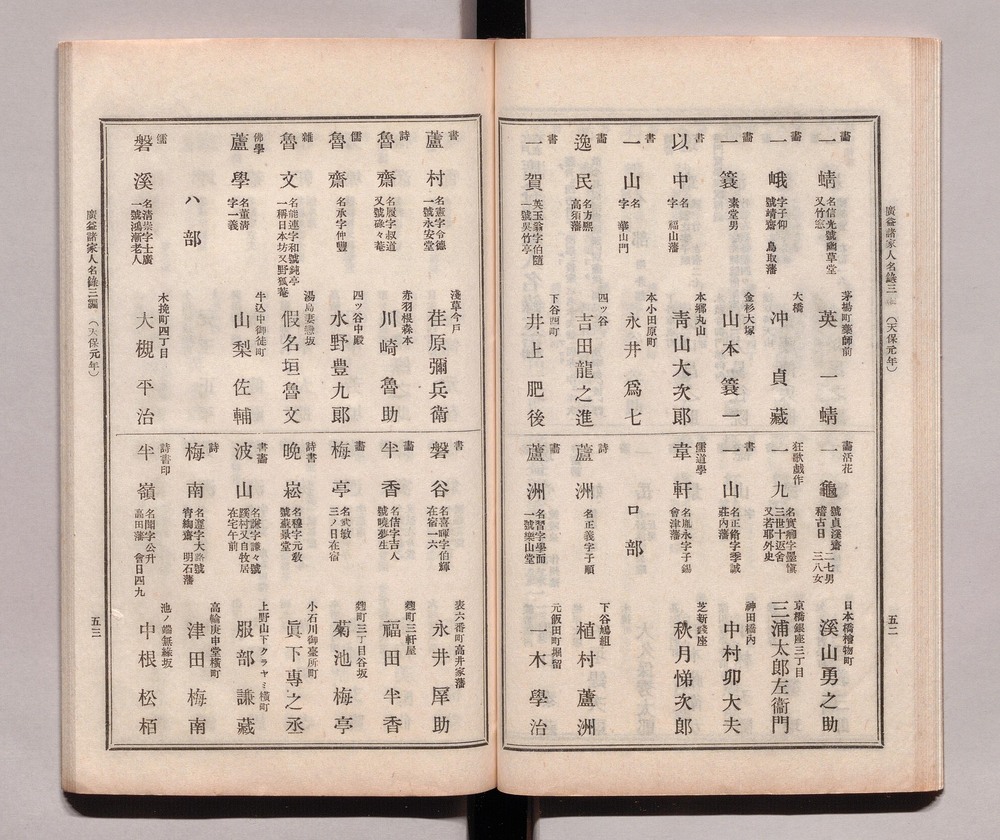 廣益諸家人名錄三 (天保元年)
五二
畵
一蜻
名信光號幽草堂
又竹窓
茅場町藥師前
英一蜻
畵
一峨
字子仰
號靖齋 鳥取藩
大橋
冲貞藏
畵
一簔
素堂男
金杉大塚
山本簔一
書
以中
名
字 福山藩
本鄉丸山
靑山大次郎
書
一山
名
字 華山門
本小田原町
永井爲七
畵
逸民
名方熈
高須藩
四ッ谷
吉田龍之進
書
一賀
英玉翁字伯隨
一號吳竹亭
下谷四町
井上肥後
畵活花
一龜
號貞溪齋 二七男
稽古日 三八女
日本橋檜物町
溪山勇之助
狂歌戯作
一九
三世十返舍
又若耶外史
京橋銀座三丁目
三浦太郎左衞門
書
一山
名正脩字季誠
莊內藩
神田橋內
中村卯大夫
儒道學
韋軒
名胤永字子錫
會津藩
芝新錢座
秋月悌次郎
ロ部
詩
蘆洲
名正義字子順
下谷鳩組
植村蘆洲
畵
蘆洲
名習字學而
一號樂山堂
元飯田町堀留
一木學治
書
蘆村
名憲字令德
一號永安堂
淺草今戶
荏原彌兵衛
詩
魯齋
名履字叔道
又號碌々菴
赤羽根森本
川崎魯助
儒
魯齋
名承字仲豐
四ッ谷中殿
水野豊九郎
雜
魯文
名能連字和號鈍亭
一稱日本坊又野狐菴
湯島妻戀坂
假名垣魯文
佛學
蘆學
名董淸
字一義
牛込中御徒町
山梨佐輔
ハ部
儒
磐溪
名淸崇字士廣
一號鴻漸老人
木挽町四丁目
大槻平治
書
磐谷
名喜暉字伯輝
在宿一六
表六番町高井家藩
永井犀助
畵
半香
名佶字吉人
號曉夢生
麴町三軒屋
福田半香
畵
梅亭
名武敏
三ノ日在宿
麴町三丁目谷坂
菊池梅亭
詩書
晚崧
名穆字元敎
號蘇景堂
小石川御臺所町
眞下專之丞
書畵
波山
名謙字謙々號
蹊村又自牧居
在宅午前
上野山下クラヤミ橫町
服部謙藏
詩
梅南
明石藩
高輪庚申堂橫町
津田梅南
詩書印
半嶺
名聞字公升
高田藩 會日四九
池ノ端無緣坂
中根松栢
廣益諸家人名錄三編 (天保元年)
五三